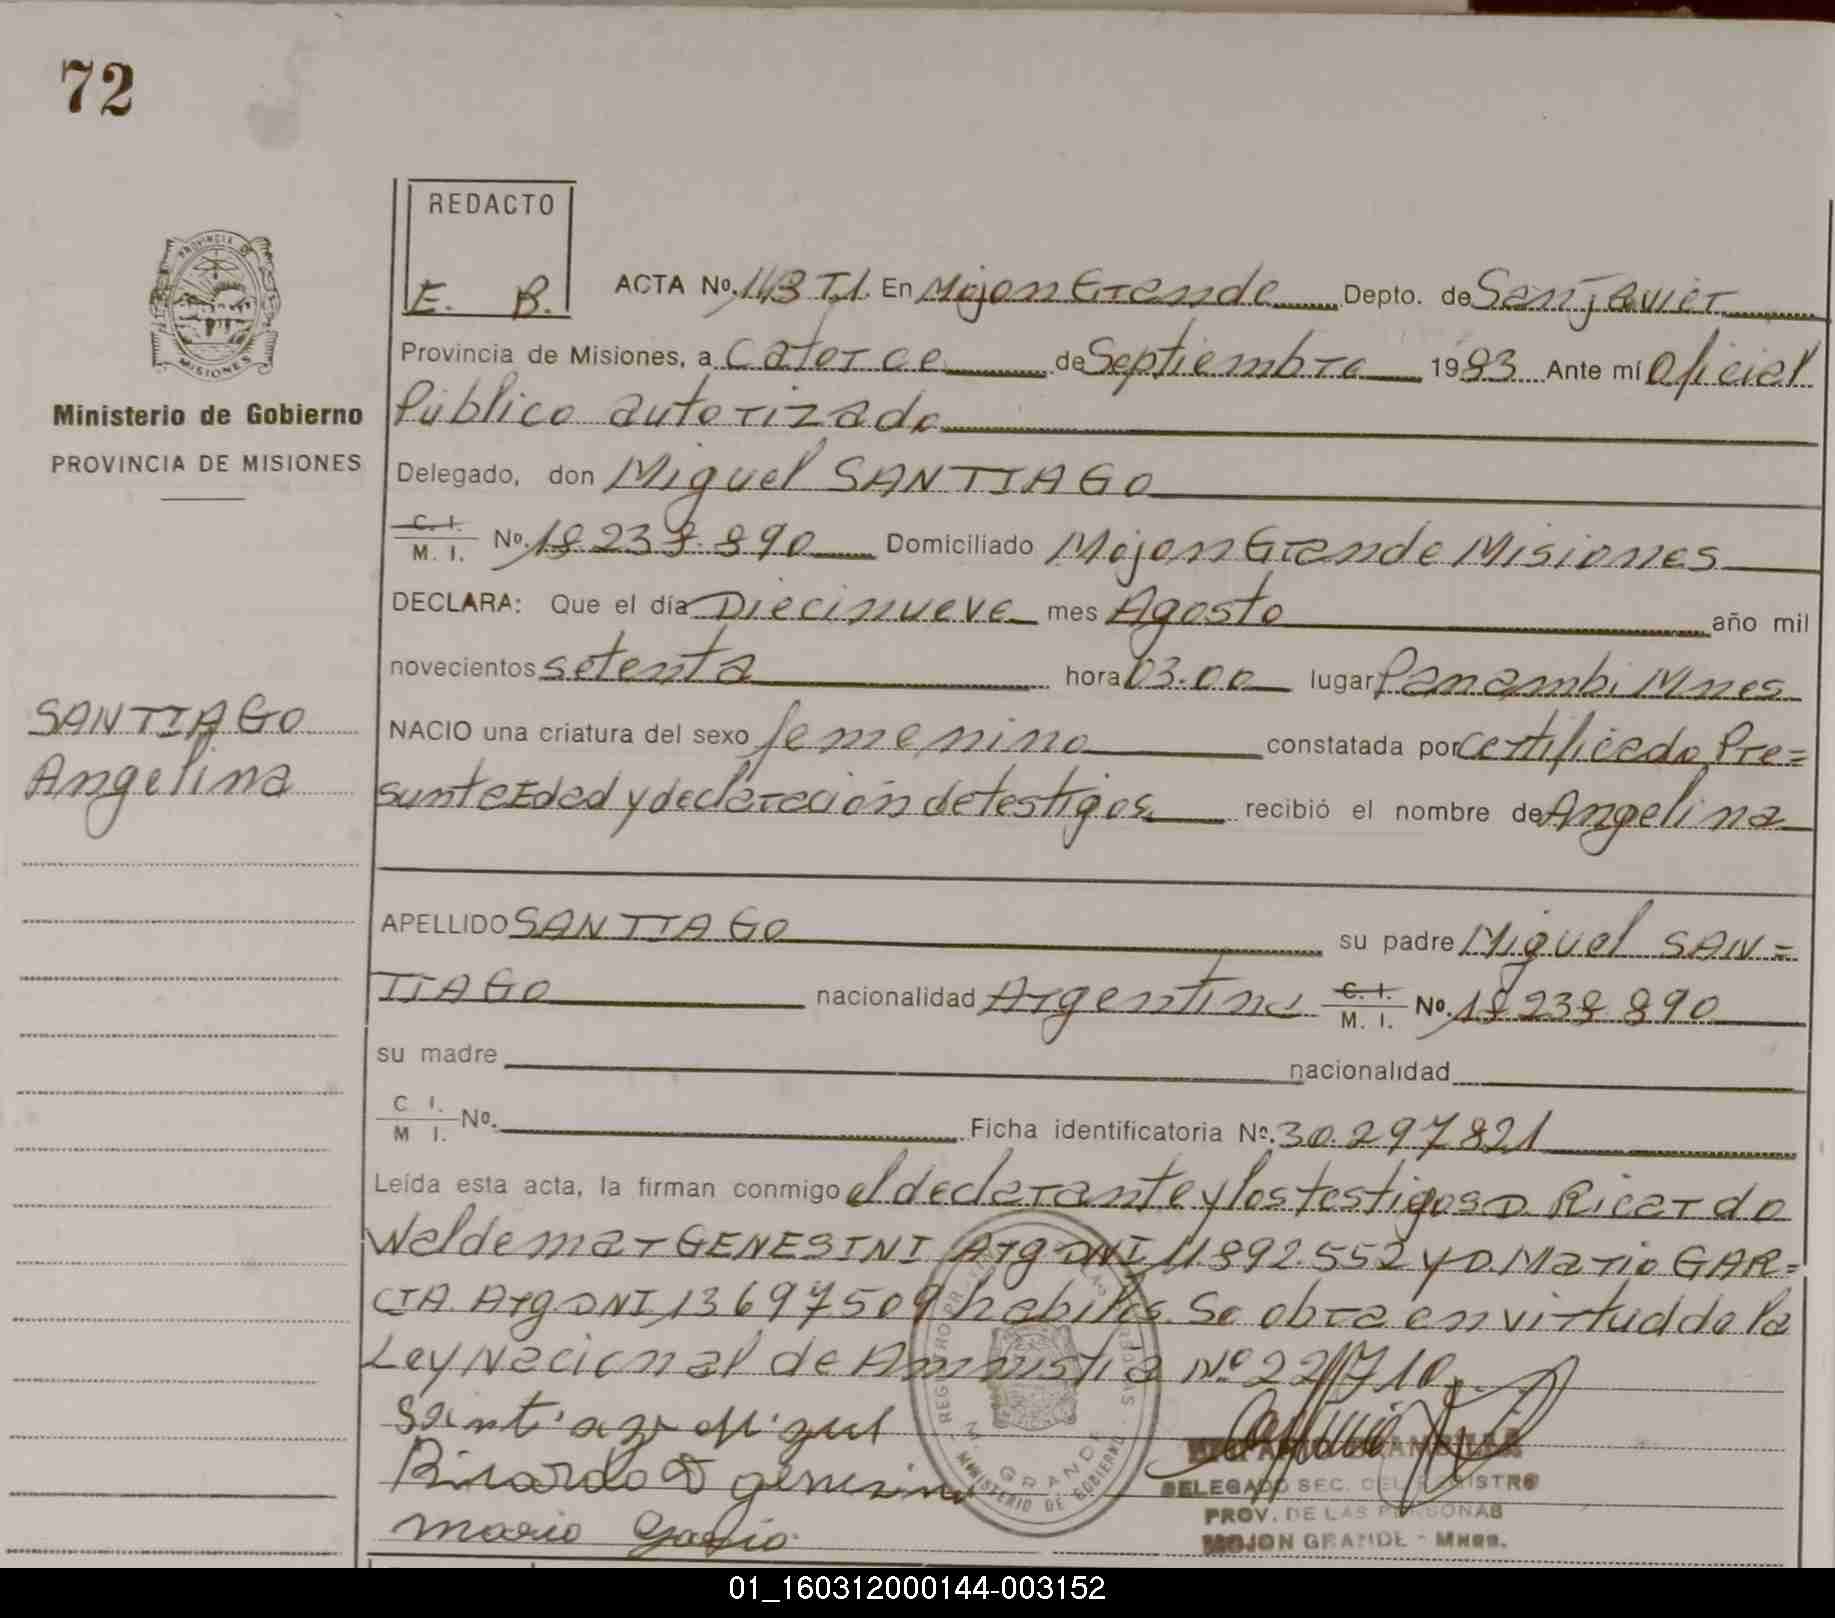 72
REDACTO
E. B.
ACTA Nº. 143 T.I. En Mojon Grande Depto. de San Javier
Provincia de Misiones, a Catorce de Septiembre 1983 Ante mí Oficial
Público autorizado
Ministerio de Gobierno
PROVINCIA DE MISIONES
Delegado, don Miguel SANTIAGO
C. I. M. I. Nº. 18.238.890 Domiciliado Mojon Grande Misiones
DECLARA: Que el día Diecinueve mes Agosto año mil
novecientos setenta hora 03.00 lugar Panambi Mnes
SANTIAGO
Angelina
NACIO una criatura del sexo femenino constatada por certificado Pre=
sunta Edad y declaración de testigos recibió el nombre de Angelina
APELLIDO SANTIAGO su padre Miguel SAN=
TIAGO nacionalidad Argentina C. I. M. I. Nº. 18.238.890
su madre nacionalidad
C I. M I. Nº. Ficha identificatoria Nº. 30.297821
Leída esta acta, la firman conmigo el declarante y los testigos D. Ricardo
Waldemar GENESINI Arg DNI 11.892.552 y D. Mario GAR=
CIA Arg DNI 13697509 habiles. Se obra en virtud de la
Ley Nacional de Amnistia Nº 22.710
Santiago Miguel
Ricardo genesini
Mario Garsia
DELEGADO SEC. DEL REGISTRO
PROV. DE LAS PERSONAS
MOJON GRANDE - Mnes.
M. GRANDE
MINISTERIO DE GOBIERNO
PROVINCIA DE
MISIONES
01_160312000144-003152